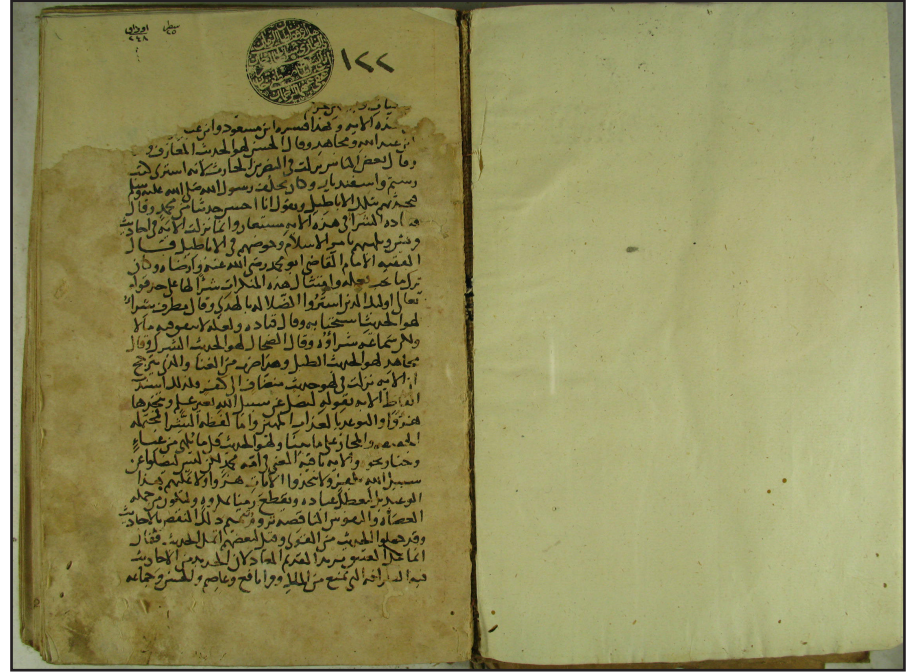 اوراق
٢٤٨
سطر
٢٥
١٢٢
هذه الايه و بهذا فسره ابن مسعود وابن عب
بن عبد الله ومجاهد وقال الحسن لهو الحديث المعازف و
وقال بعض الناس نزلت في النضر بن الحارث لانه اشترى كتب
رستم واسفنديار وكان يخلف رسول الله صلى الله عليه وسلم
فيحدثهم بتلك الاباطيل ويقول انا احسن حديثا من محمد وقال
قتاده الشرا في هذه الايه مستعار وانما نزلت الايه في احاديث
قريش وتلهيهم بامر الاسلام وخوضهم في الاباطيل قال
الفقيه الامام القاضي ابو محمد رضي الله عنه وارضاه وكان
ترك ما يجب فعله وامتثال هذه المنكرات شرا لها على حد قوله
تعالى اولئك الذين اشتروا الضلاله بالهدى وقال مطرف شراء
لهو الحديث استحبابه وقال قتاده ولعله لا ينفق فيه مالا
ولكن سماعه شراؤه وقال الضحاك لهو الحديث الشرك وقال
مجاهد لهو الحديث الطبل وهذا ضرب من الغنا والذي يترجح
ان الايه نزلت في لهو حديث منضاف الى كفر ولذلك اشتدت
الفاظ الايه بقوله ليضل عن سبيل الله بغير علم ويتخذها
هزوا والتوعد بالعذاب المهين واما لفظه الشرا فمحتمله
الحقيقه والمجاز على ما بينا ولهو الحديث كل ما يلهي من غناء
وخنا ونحوه والايه باقية المعنى في امة محمد لكن ليس ليضلوا عن
سبيل الله بكفر ولا يتخذوا الايات هزوا ولا عليهم هذا
الوعيد بل ليعطل عباده ويقطع زمنا بمكروه وليكون من جمله
العصاه والنفوس الناقصه تروم تتميم ذلك النقص بالاحاديث
وقد جعلوا الحديث من القرى وقيل لبعضهم اتمل الحديث فقال
انما يمل العتيق يريد القديم المعاد لان الحديث من الاحاديث
فيه الطرافه التي تمنع من الملل وقرا نافع وعاصم والحسن وجماعه